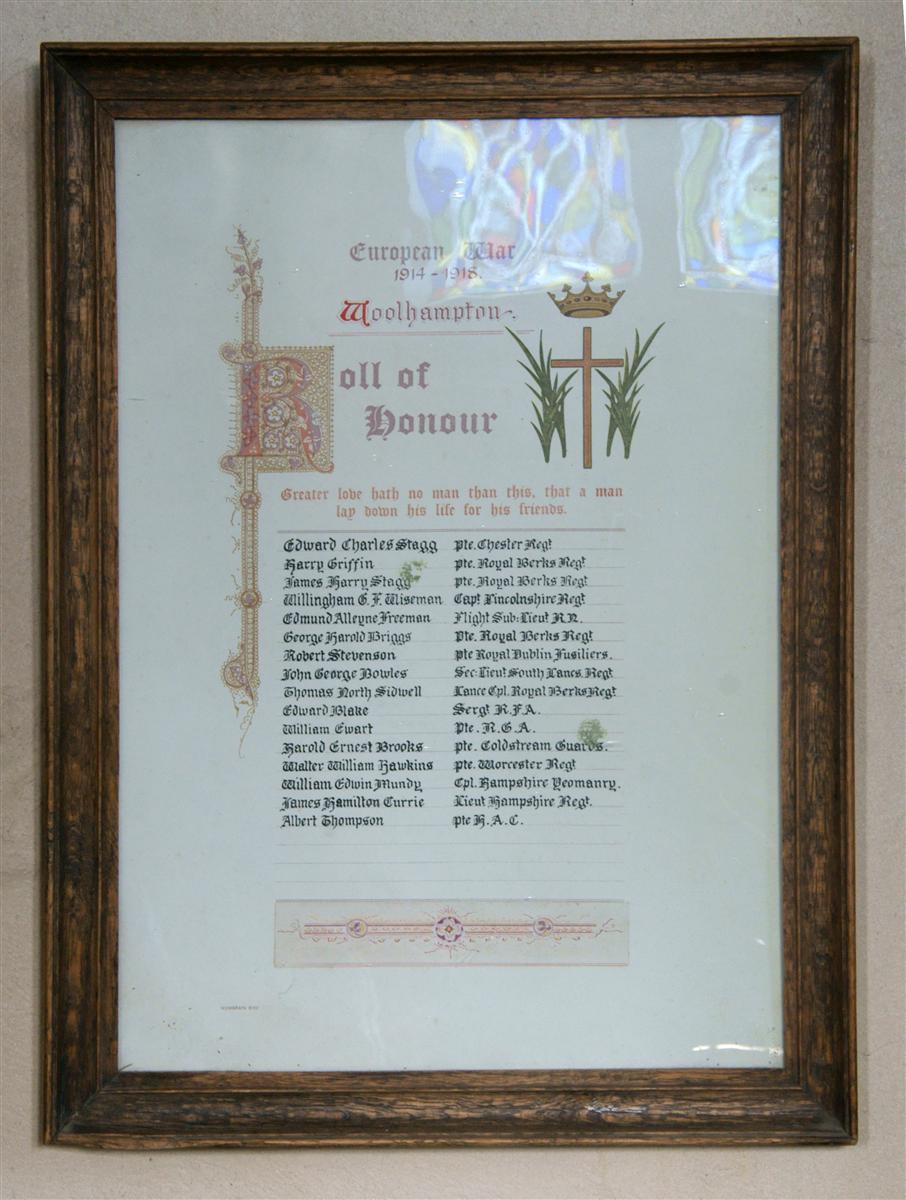 European War
1914 - 1918.
Woolhampton
Roll of
Honour
Greater love hath no man than this, that a man
lay down his life for his friends.
Edward Charles Stagg Pte. Chester Regt
Harry Griffin pte. Royal Berks Regt
James Harry Stagg pte. Royal Berks Regt
Willingham G. F. Wiseman Capt Lincolnshire Regt
Edmund Alleyne Freeman Flight Sub: Lieut R.N.
George Harold Briggs Pte. Royal Berks Regt
Robert Stevenson pte Royal Dublin Fusiliers.
John George Bowles Sec: Lieut South Lancs. Regt
Thomas North Sidwell Lance Cpl. Royal Berks Regt
Edward Blake Sergt R.F.A.
William Ewart Pte. R.G.A.
Harold Ernest Brooks pte. Coldstream Guards.
Walter William Hawkins pte. Worcester Regt
William Edwin Mundy Cpl. Hampshire Yeomanry.
James Hamilton Currie Lieut Hampshire Regt.
Albert Thompson pte H.A.C.